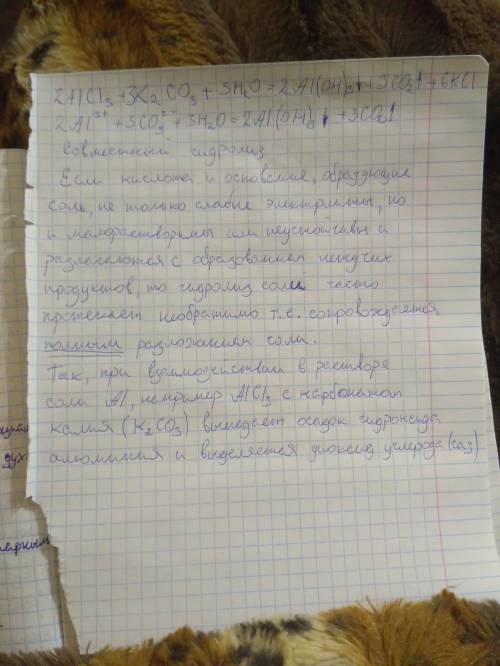 2AlCl3 + 3K2CO3 + 3H2O = 2Al(OH)3↓ + 3CO2↑ + 6KCl
2Al³⁺ + 3CO3²⁻ + 3H2O = 2Al(OH)3↓ + 3CO2↑
Совместный гидролиз
Если кислота и основание, образующие
соль, не только слабые электролиты, но
и малорастворимы или неустойчивы и
разлагаются с образованием летучих
продуктов, то гидролиз солей часто
протекает необратимо т.е. сопровождается
полным разложением соли.
Так, при взаимодействии в растворе
соли Al, например AlCl3 с карбонатом
калия (K2CO3) выпадает осадок гидроксида
алюминия и выделяется диоксид углерода (co2)
дух